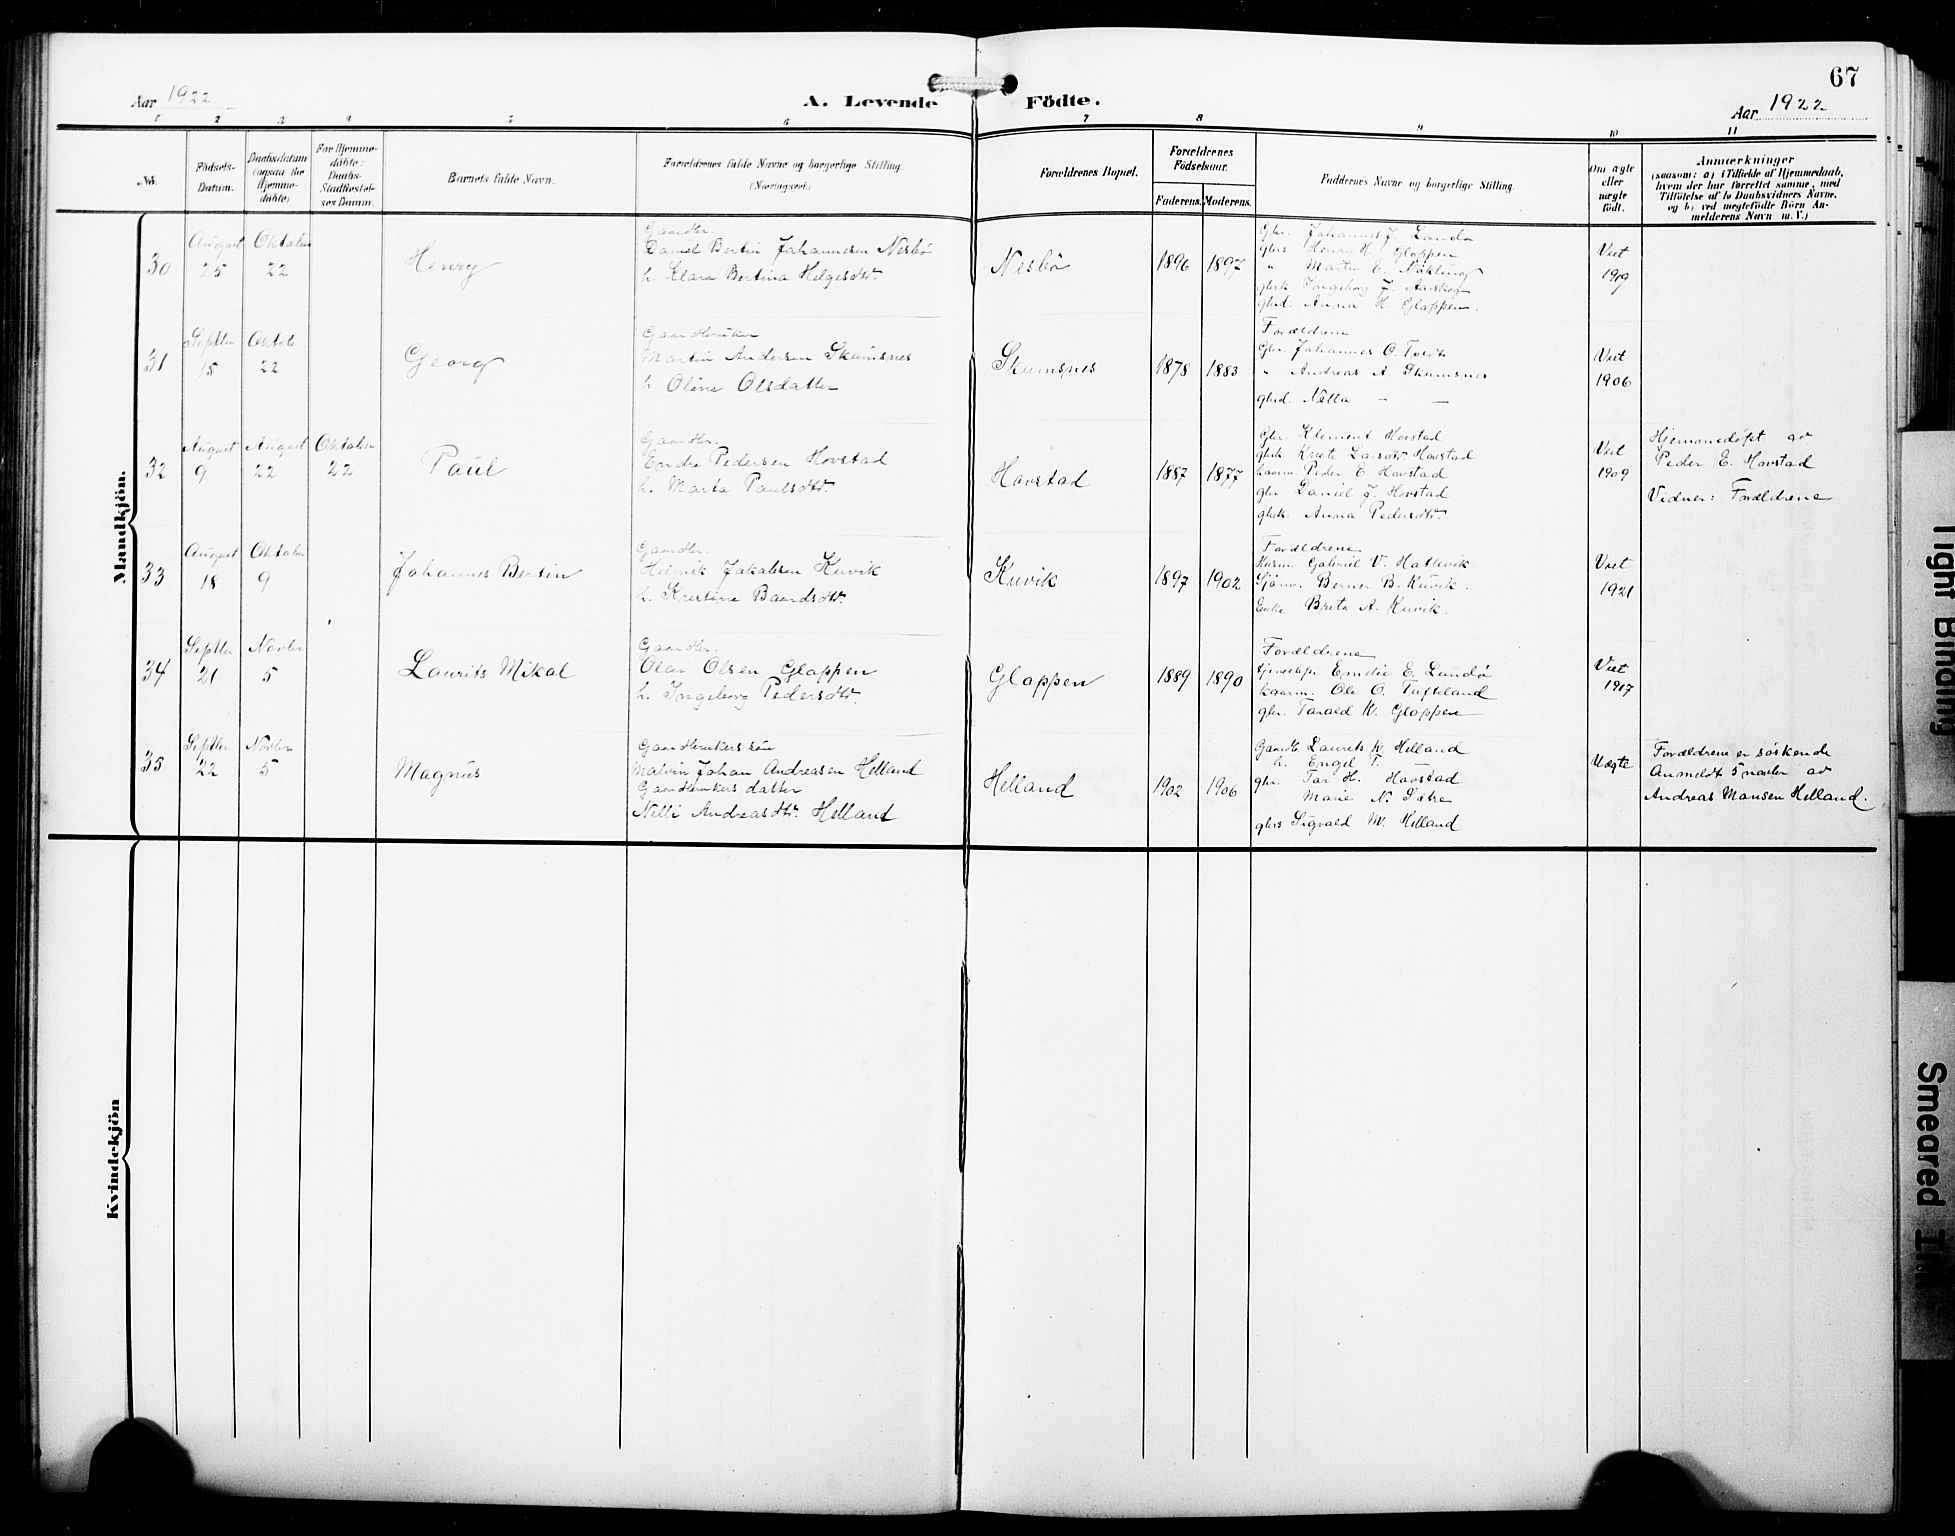 67
Aar 1922
A. Levende Födte.
Aar 1922
1 2 3 4 5 6 7 8 9 10 11
No.
Födsels-
Datum.
Daabsdatum
(ogsaa for
Hjemme-
döbte)
For Hjemme-
döbte:
Daabs-
Stadfæstel-
ses Datum.
Barnets fulde Navn.
Forældrenes fulde Navne og borgerlige Stilling.
(Næringsvei)
Forældrenes Bopæl.
Forældrenes
Födselsaar.
Faderens. Moderens.
Faddernes Navne og borgerlige Stilling.
Om ægte
eller
uægte
födt.
Anmærkninger
(saasom: a) i Tilfælde af Hjemmedaab,
hvem der har forrettet samme, med
Tilföielse af to Daabsvidners Navne,
og b) ved uægtefödte Börn An-
melderens Navn m. V.)
Mandkjön.
30
August
25
Oktober
22
Henry
Gaardbr.
Daniel Bertin Johannesen Nesbö
h. Klara Bertina Helgesdtr.
Nesbö
1896 1897
Gbr. Johannes J. Landö
gbrs Henry H. Gloppen
" Martin E. Nökling
gbrk Ingeborg J. Aarskog
gbrd. Anna H. Gloppen.
Viet
1919
31
Septbr
15
Oktob
22
Georg
Gaardbruker
Martin Andersen Skumsnes
h. Oline Olsdatter
Skumsnes
1878 1883
Forældrene
Gbr. Johannes O. Tvedt
" Andreas A. Skumsnes
gbrd. Nilla — —
Viet
1906
32
August
9
August
22
Oktober
22
Paul
Gaardbr.
Endre Pedersen Hovstad
h. Marta Paulsdtr.
Hovstad
1887 1877
Gbr. Klement Hovstad
gbrk Kristi Larsdtr Hovstad
kaarm. Peder E. Hovstad
gbr Daniel J. Hovstad
gbrk Anna Pedersdtr.
Viet
1909
Hjemmedöpt av
Peder E. Hovstad
Vidner: Forældrene
33
August
18
Oktober
9
Johannes Bertin
Gaardbr.
Henrik Jakobsen Kuvik
h. Kristine Baardsdtr.
Kuvik
1897 1902
Forældrene
Husm. Gabriel V. Hatlevik
Sjöm. Berner B. Kuvik.
Enke Brita A. Kuvik.
Viet
1921
34
Septbr
21
Novbr
5
Laurits Mikal
Gaardbr.
Olai Olsen Gloppen
h. Ingeborg Pedersdtr.
Gloppen
1889 1890
Forældrene
Emelie E. Lundö
kaarm. Ole O. Tufteland
gbr. Tarald K. Gloppen
Viet
1917
35
Septbr
22
Novbr
5
Magnus
Gaardbrukers sön
Malvin Johan Andreasen Helland
Gaardbrukers datter
Nilli Andreasdtr. Helland
Helland
1902 1906
Gaardb. Laurits K. Helland
h. Engel T. —
gbr. Tor H. Hovstad
Marie N. Sætre
gbrs Sigvald M. Helland
Uægte
Forældrene er söskende
Anmeldt 5 novbr av
Andreas Monsen Helland.
Kvindekjön
Tight Binding
Smeared